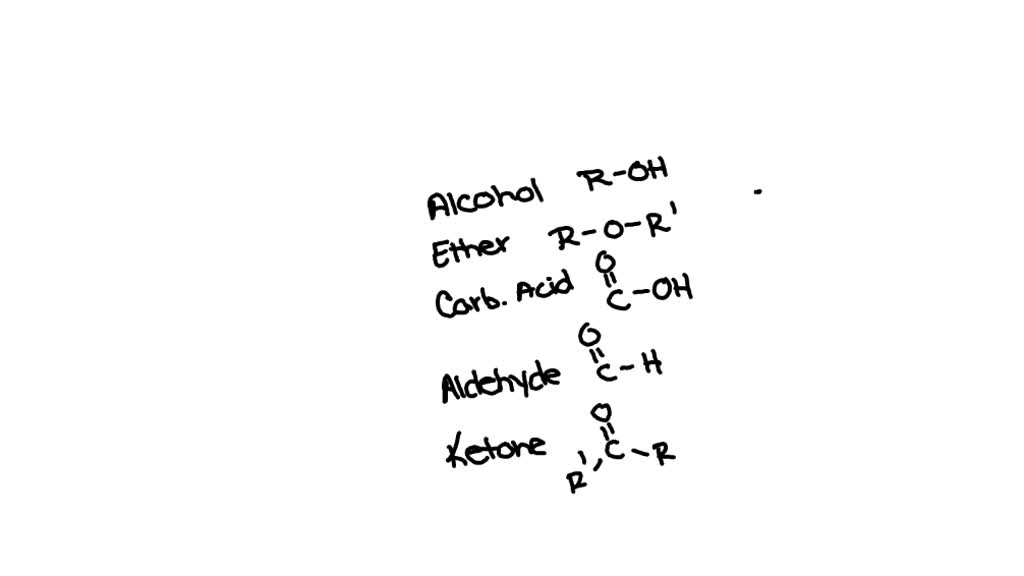 Alcohol R-OH
Ether R-O-R'
O
Carb. Acid C-OH
O
Aldehyde C-H
O
Ketone C-R
R'